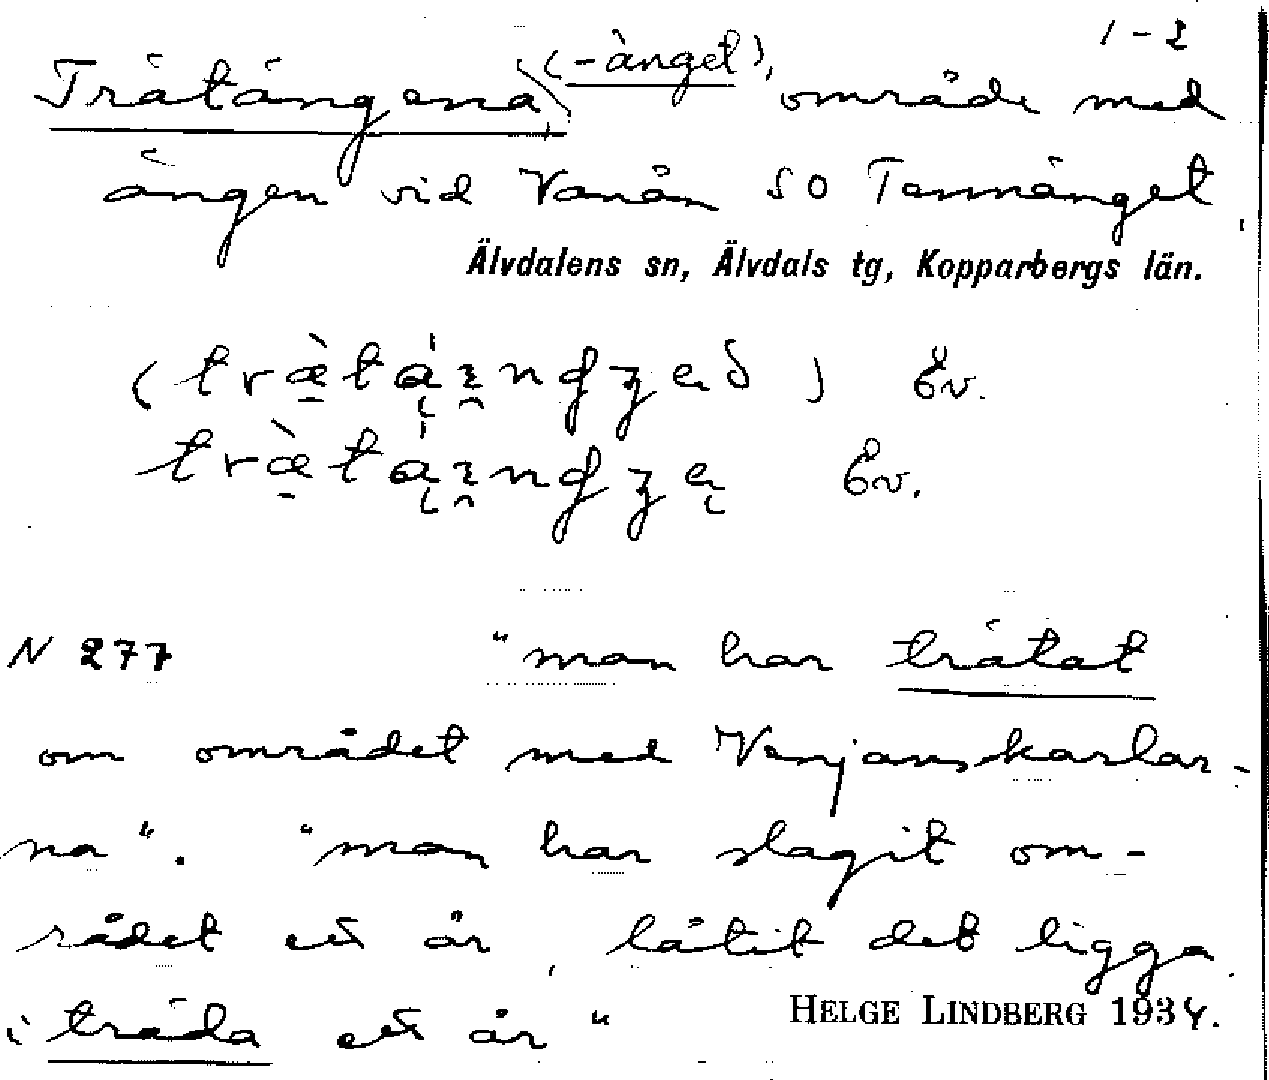 1-2
Trätängena, (-änget), område med
ängen vid Vanån SO Tennänget.
Älvdalens sn, Älvdals tg, Kopparbergs län.
Ev.
Ev.
N 277 "man har trätat
om området med Venjanskarlar-
na". "man har slagit om-
rådet ett år, låtit det ligga
i träda ett år"
HELGE LINDBERG 1934.